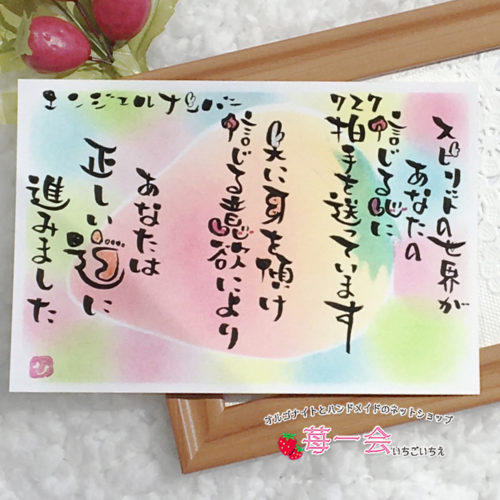 エンジェルナンバー
727
スピリットの世界が
あなたの
信じる心に
拍手を送っています
心に耳を傾け
信じる意欲により
あなたは
正しい道に
進みました
ひ
オルゴナイトとハンドメイドのネットショップ
苺一会 いちごいちえ